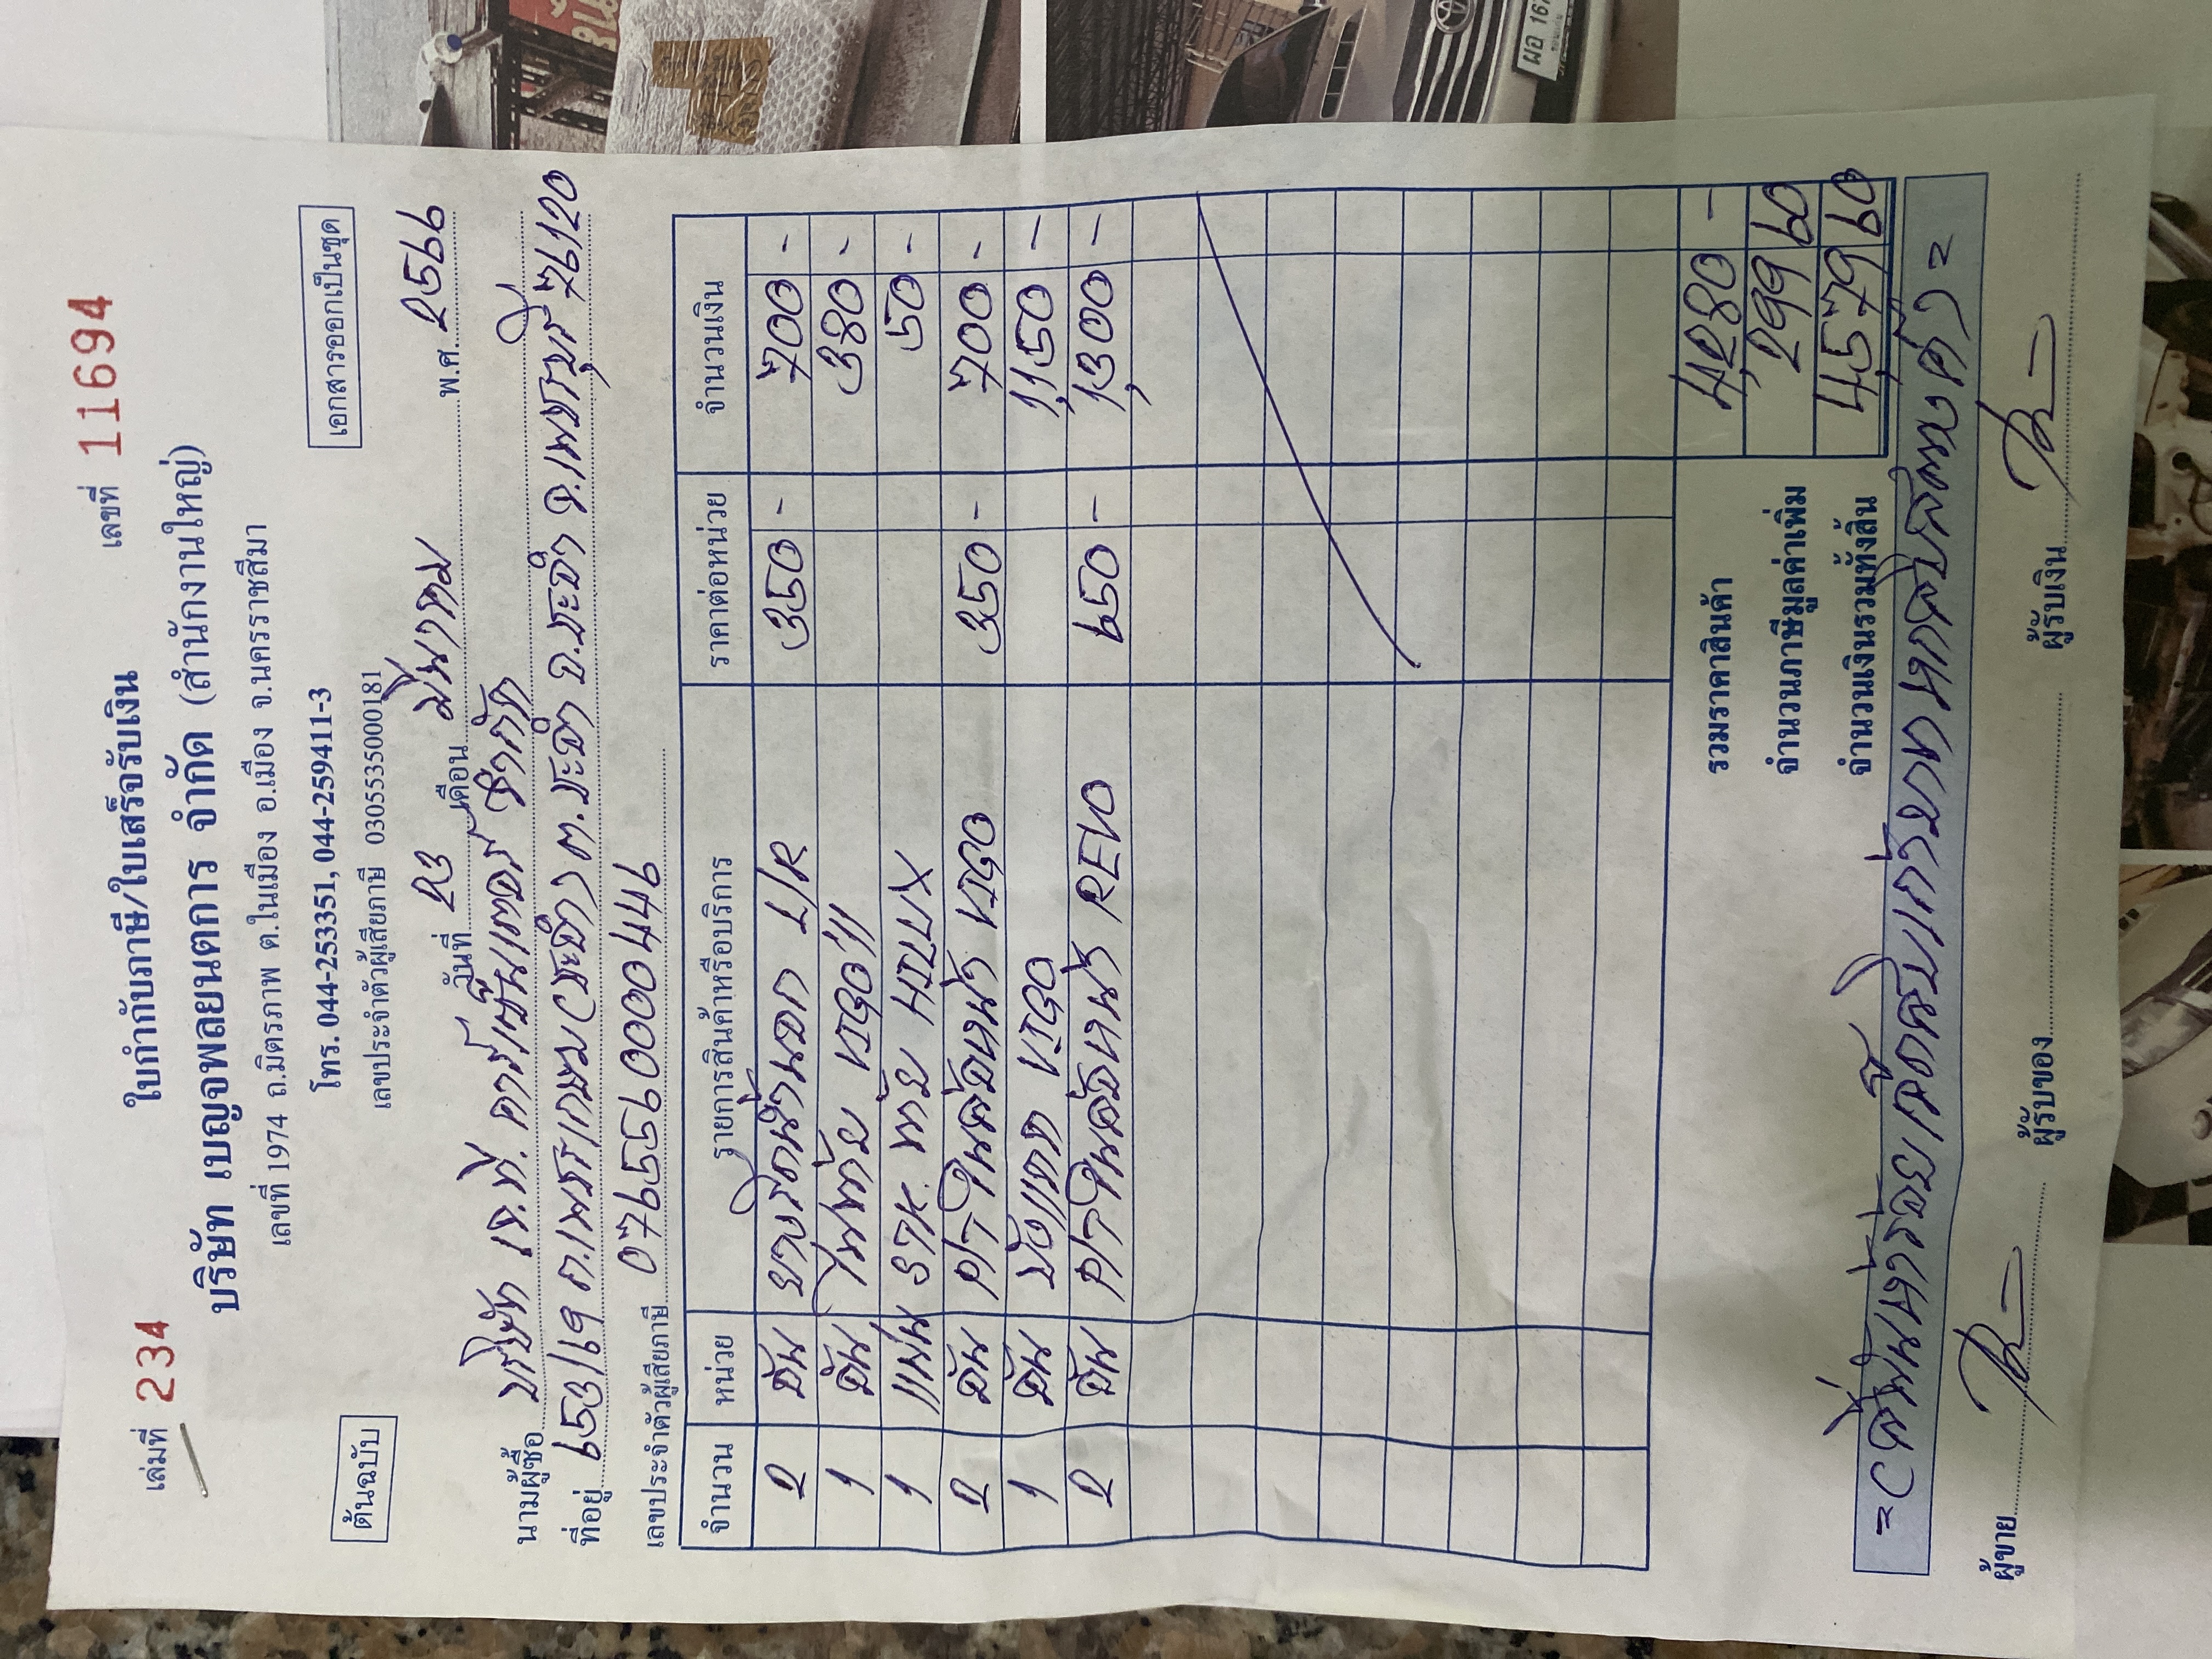 เล่มที่ 234
เลขที่ 11694
ใบกำกับภาษี/ใบเสร็จรับเงิน
บริษัท เบญจพลยนตการ จำกัด (สำนักงานใหญ่)
เลขที่ 1974 ถ.มิตรภาพ ต.ในเมือง อ.เมือง จ.นครราชสีมา
ต้นฉบับ
โทร. 044-253351, 044-259411-3
เอกสารออกเป็นชุด
เลขประจำตัวผู้เสียภาษี 0305535000181
วันที่ 23 เดือน มีนาคม พ.ศ. 2566
นามผู้ซื้อ บริษัท เจ.ที. คาร์เซ็นเตอร์ จำกัด
ที่อยู่ 653/19 ถ.เพชรเกษม(ชะอำ) ต.ชะอำ อ.ชะอำ จ.เพชรบุรี 76120
เลขประจำตัวผู้เสียภาษี 0765590004469
จำนวน หน่วย รายการสินค้าหรือบริการ ราคาต่อหน่วย จำนวนเงิน
2 อัน ยางรีดน้ำนอก L/R 350 - 700 -
1 อัน VIGO 380 -
1 แผ่น STK. ท้าย 50 -
2 อัน VIGO 350 - 700 -
1 อัน VIGO 1,150 -
2 อัน REVO 650 - 1,300 -
รวมราคาสินค้า 4,280 -
จำนวนภาษีมูลค่าเพิ่ม 299 60
จำนวนเงินรวมทั้งสิ้น 4,579 60
=(สี่พันห้าร้อยเจ็ดสิบเก้าบาทหกสิบสตางค์)=
ผู้ขาย ผู้รับของ ผู้รับเงิน
ผอ 167